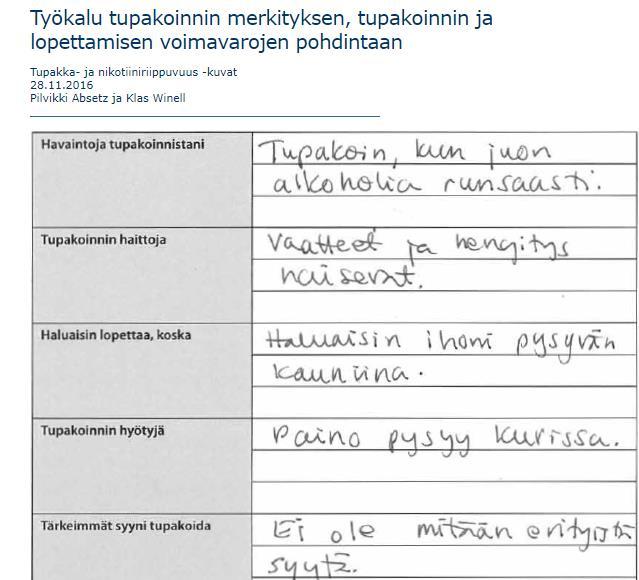 Työkalu tupakoinnin merkityksen, tupakoinnin ja
lopettamisen voimavarojen pohdintaan
Tupakka- ja nikotiiniriippuvuus -kuvat
28.11.2016
Pilvikki Absetz ja Klas Winell
Havaintoja tupakoinnistani
Tupakoin, kun juon
alkoholia runsaasti.
Tupakoinnin haittoja
Vaatteet ja hengitys
haisevat.
Haluaisin lopettaa, koska
Haluaisin ihoni pysyvän
kauniina.
Tupakoinnin hyötyjä
Paino pysyy kurissa.
Tärkeimmät syyni tupakoida
Ei ole mitään erityistä
syytä.